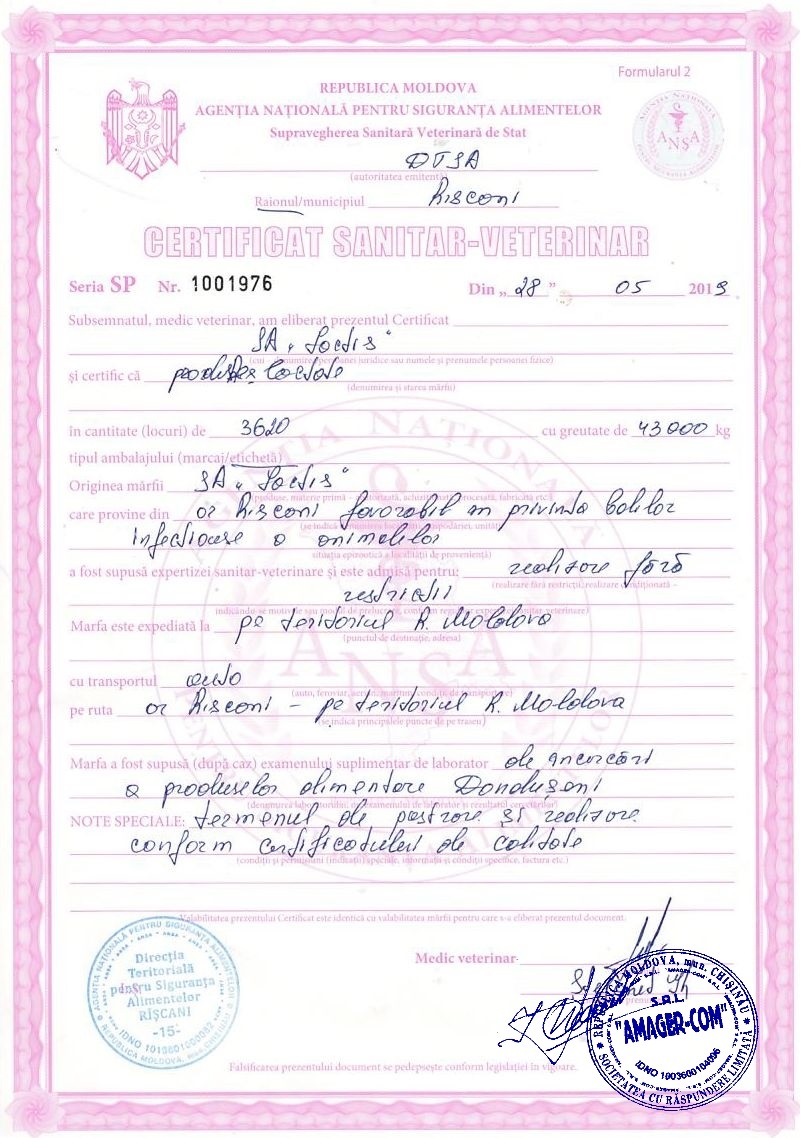 Formularul 2
REPUBLICA MOLDOVA
AGENȚIA NAȚIONALĂ PENTRU SIGURANȚA ALIMENTELOR
Supravegherea Sanitară Veterinară de Stat
AGENȚIA NAȚIONALĂ
ANSA
DTSA
(autoritatea emitentă)
Raionul/municipiul Rîșcani
CERTIFICAT SANITAR-VETERINAR
Seria SP Nr. 1001976 Din „ 28 ” 05 2019
Subsemnatul, medic veterinar, am eliberat prezentul Certificat
SA „Lactis“
(cui - denumirea persoanei juridice sau numele și prenumele persoanei fizice)
și certific că produse lactate
(denumirea și starea mărfii)
în cantitate (locuri) de 3620 cu greutate de 43000 kg
tipul ambalajului (marcaj/etichetă)
Originea mărfii SA „Lactis“
care provine din or Rîșcani favorabil în privința bolilor
infecțioase a animalelor
situația epizootică a localității de proveniență)
a fost supusă expertizei sanitar-veterinare și este admisă pentru: realizare fără
(realizare fără restricții, realizare condiționată -
restricții
Marfa este expediată la pe teritoriul R. Moldova
(punctul de destinație, adresa)
cu transportul auto
pe ruta or Rîșcani – pe teritoriul R. Moldova
(se indică principalele puncte de pe traseu)
Marfa a fost supusă (după caz) examenului suplimentar de laborator de încercări
a produselor alimentare Dondușeni
NOTE SPECIALE: termenul de păstrare și realizare
conform certificatului de calitate
(condiții și permisiuni (indicații) speciale, informația și condiții specifice, factura etc.)
Valabilitatea prezentului Certificat este identică cu valabilitatea mărfii pentru care s-a eliberat prezentul document.
Medic veterinar
AGENȚIA NAȚIONALĂ PENTRU SIGURANȚA ALIMENTELOR
Direcția
Teritorială
pentru Siguranța
Alimentelor
RÎȘCANI
-15-
REPUBLICA MOLDOVA, mun. CHIȘINĂU
REPUBLICA MOLDOVA, mun. CHIȘINĂU
S.R.L.
"AMAGER-COM"
IDNO 1003600104096
SOCIETATEA CU RĂSPUNDERE LIMITATĂ
Falsificarea prezentului document se pedepsește conform legislației în vigoare.